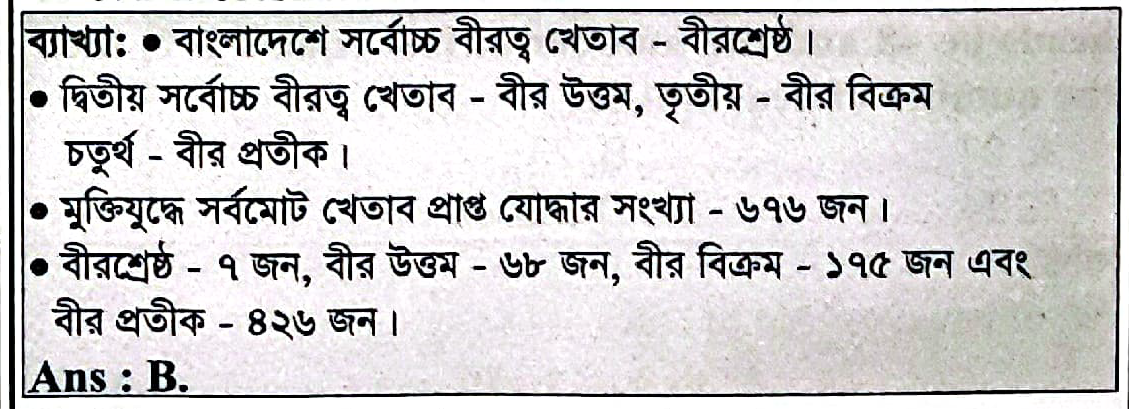 ব্যাখ্যা: ● বাংলাদেশে সর্বোচ্চ বীরত্ব খেতাব - বীরশ্রেষ্ঠ।
● দ্বিতীয় সর্বোচ্চ বীরত্ব খেতাব - বীর উত্তম, তৃতীয় - বীর বিক্রম
চতুর্থ - বীর প্রতীক।
● মুক্তিযুদ্ধে সর্বমোট খেতাব প্রাপ্ত যোদ্ধার সংখ্যা - ৬৭৬ জন।
● বীরশ্রেষ্ঠ - ৭ জন, বীর উত্তম - ৬৮ জন, বীর বিক্রম - ১৭৫ জন এবং
বীর প্রতীক - ৪২৬ জন।
Ans : B.